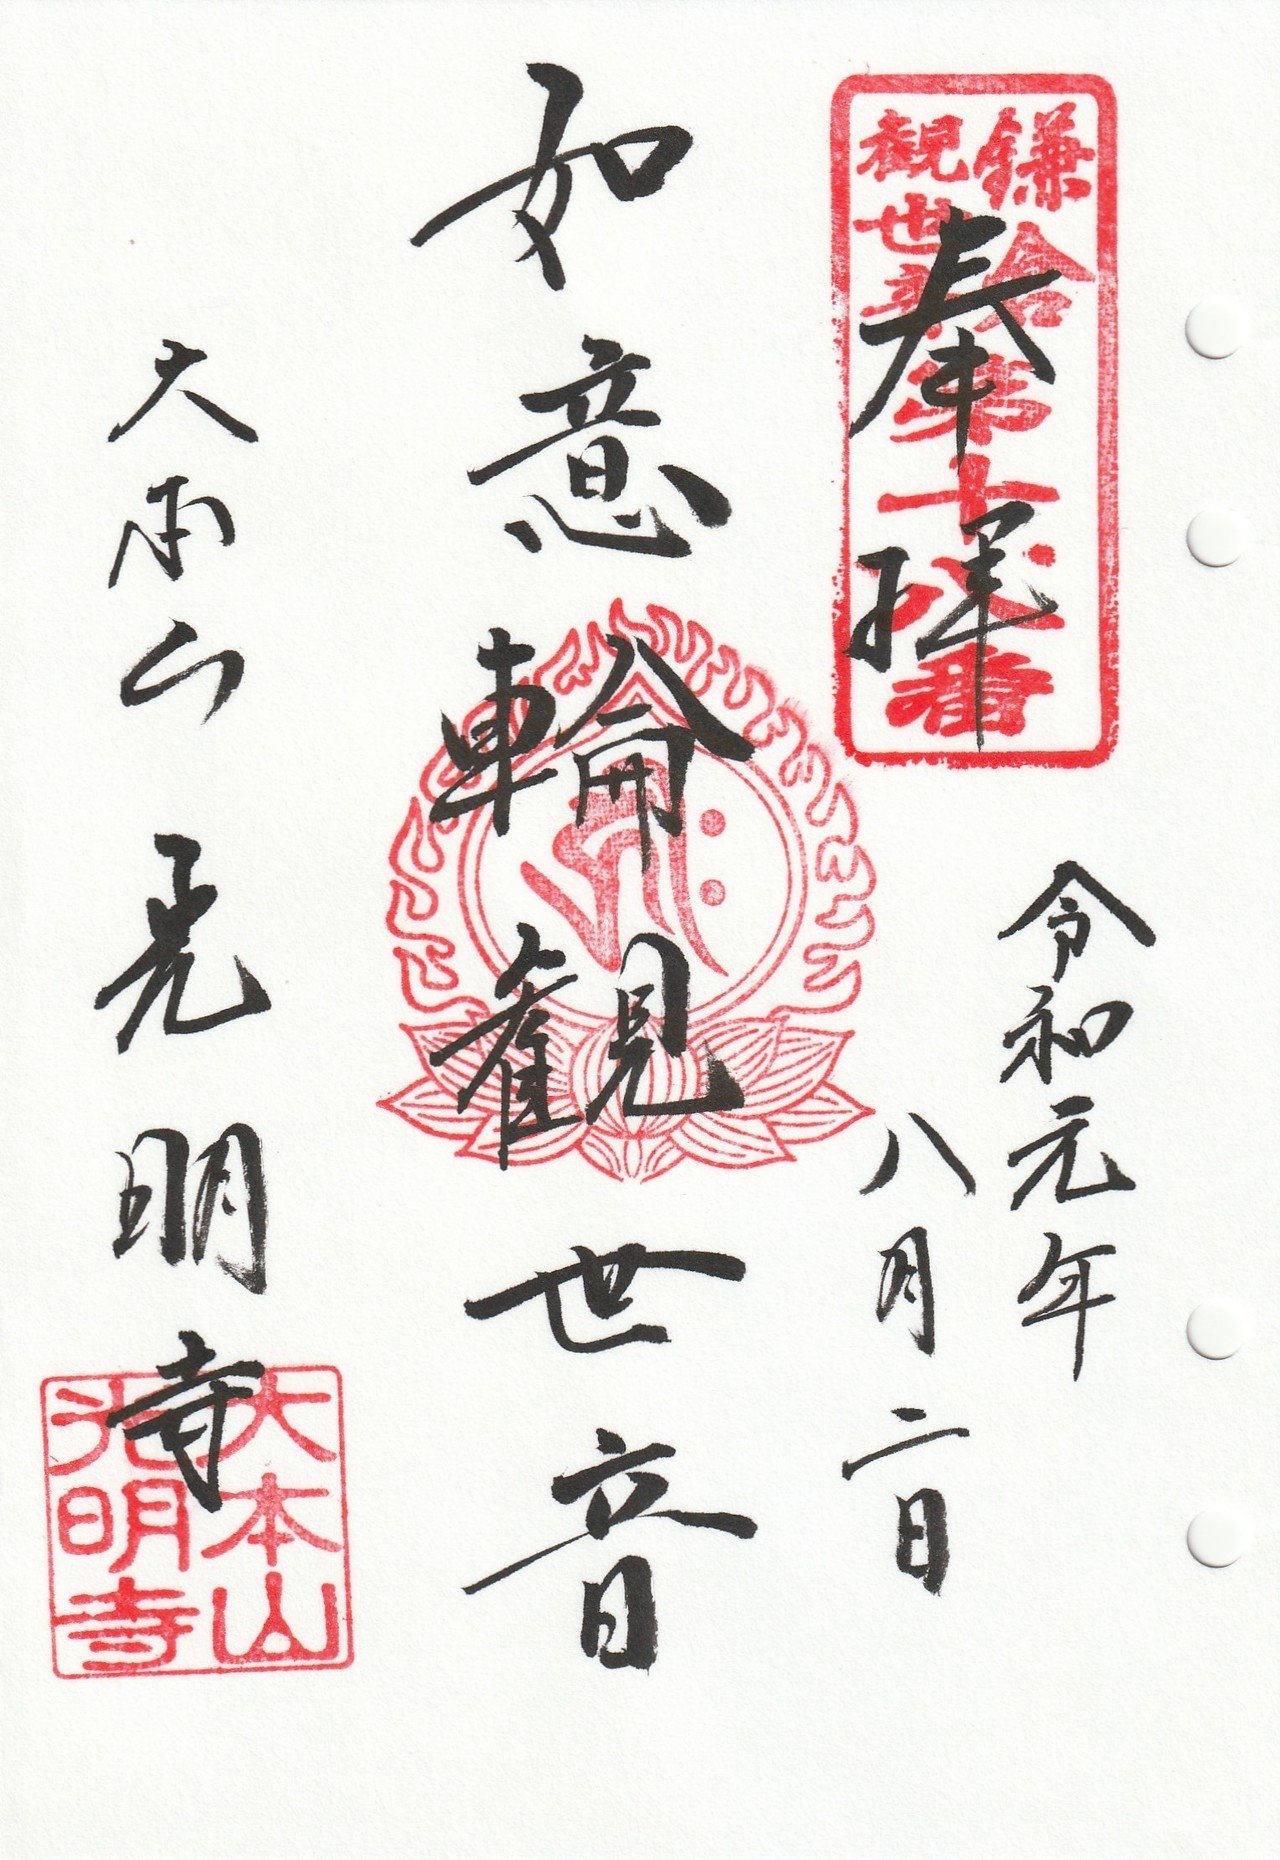 鎌倉
観世音
第十八番
奉拝
令和元年
八月二日
如意輪観世音
大本山 光明寺
大本山
光明寺